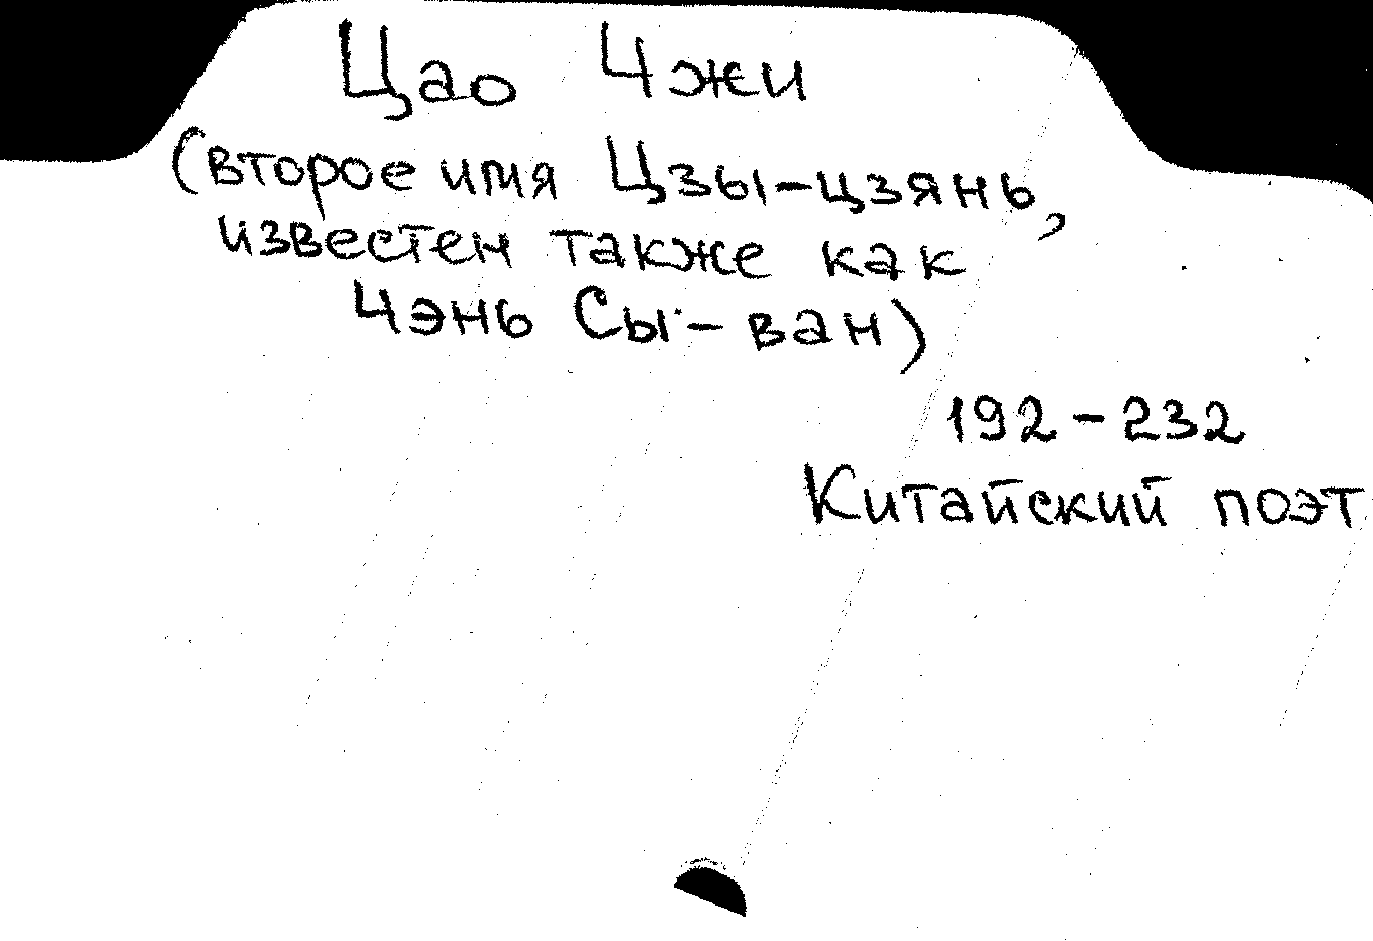 Цао Чжи
(второе имя Цзы-цзянь,
известен также как
Чэнь Сы-ван)
192-232
Китайский поэт